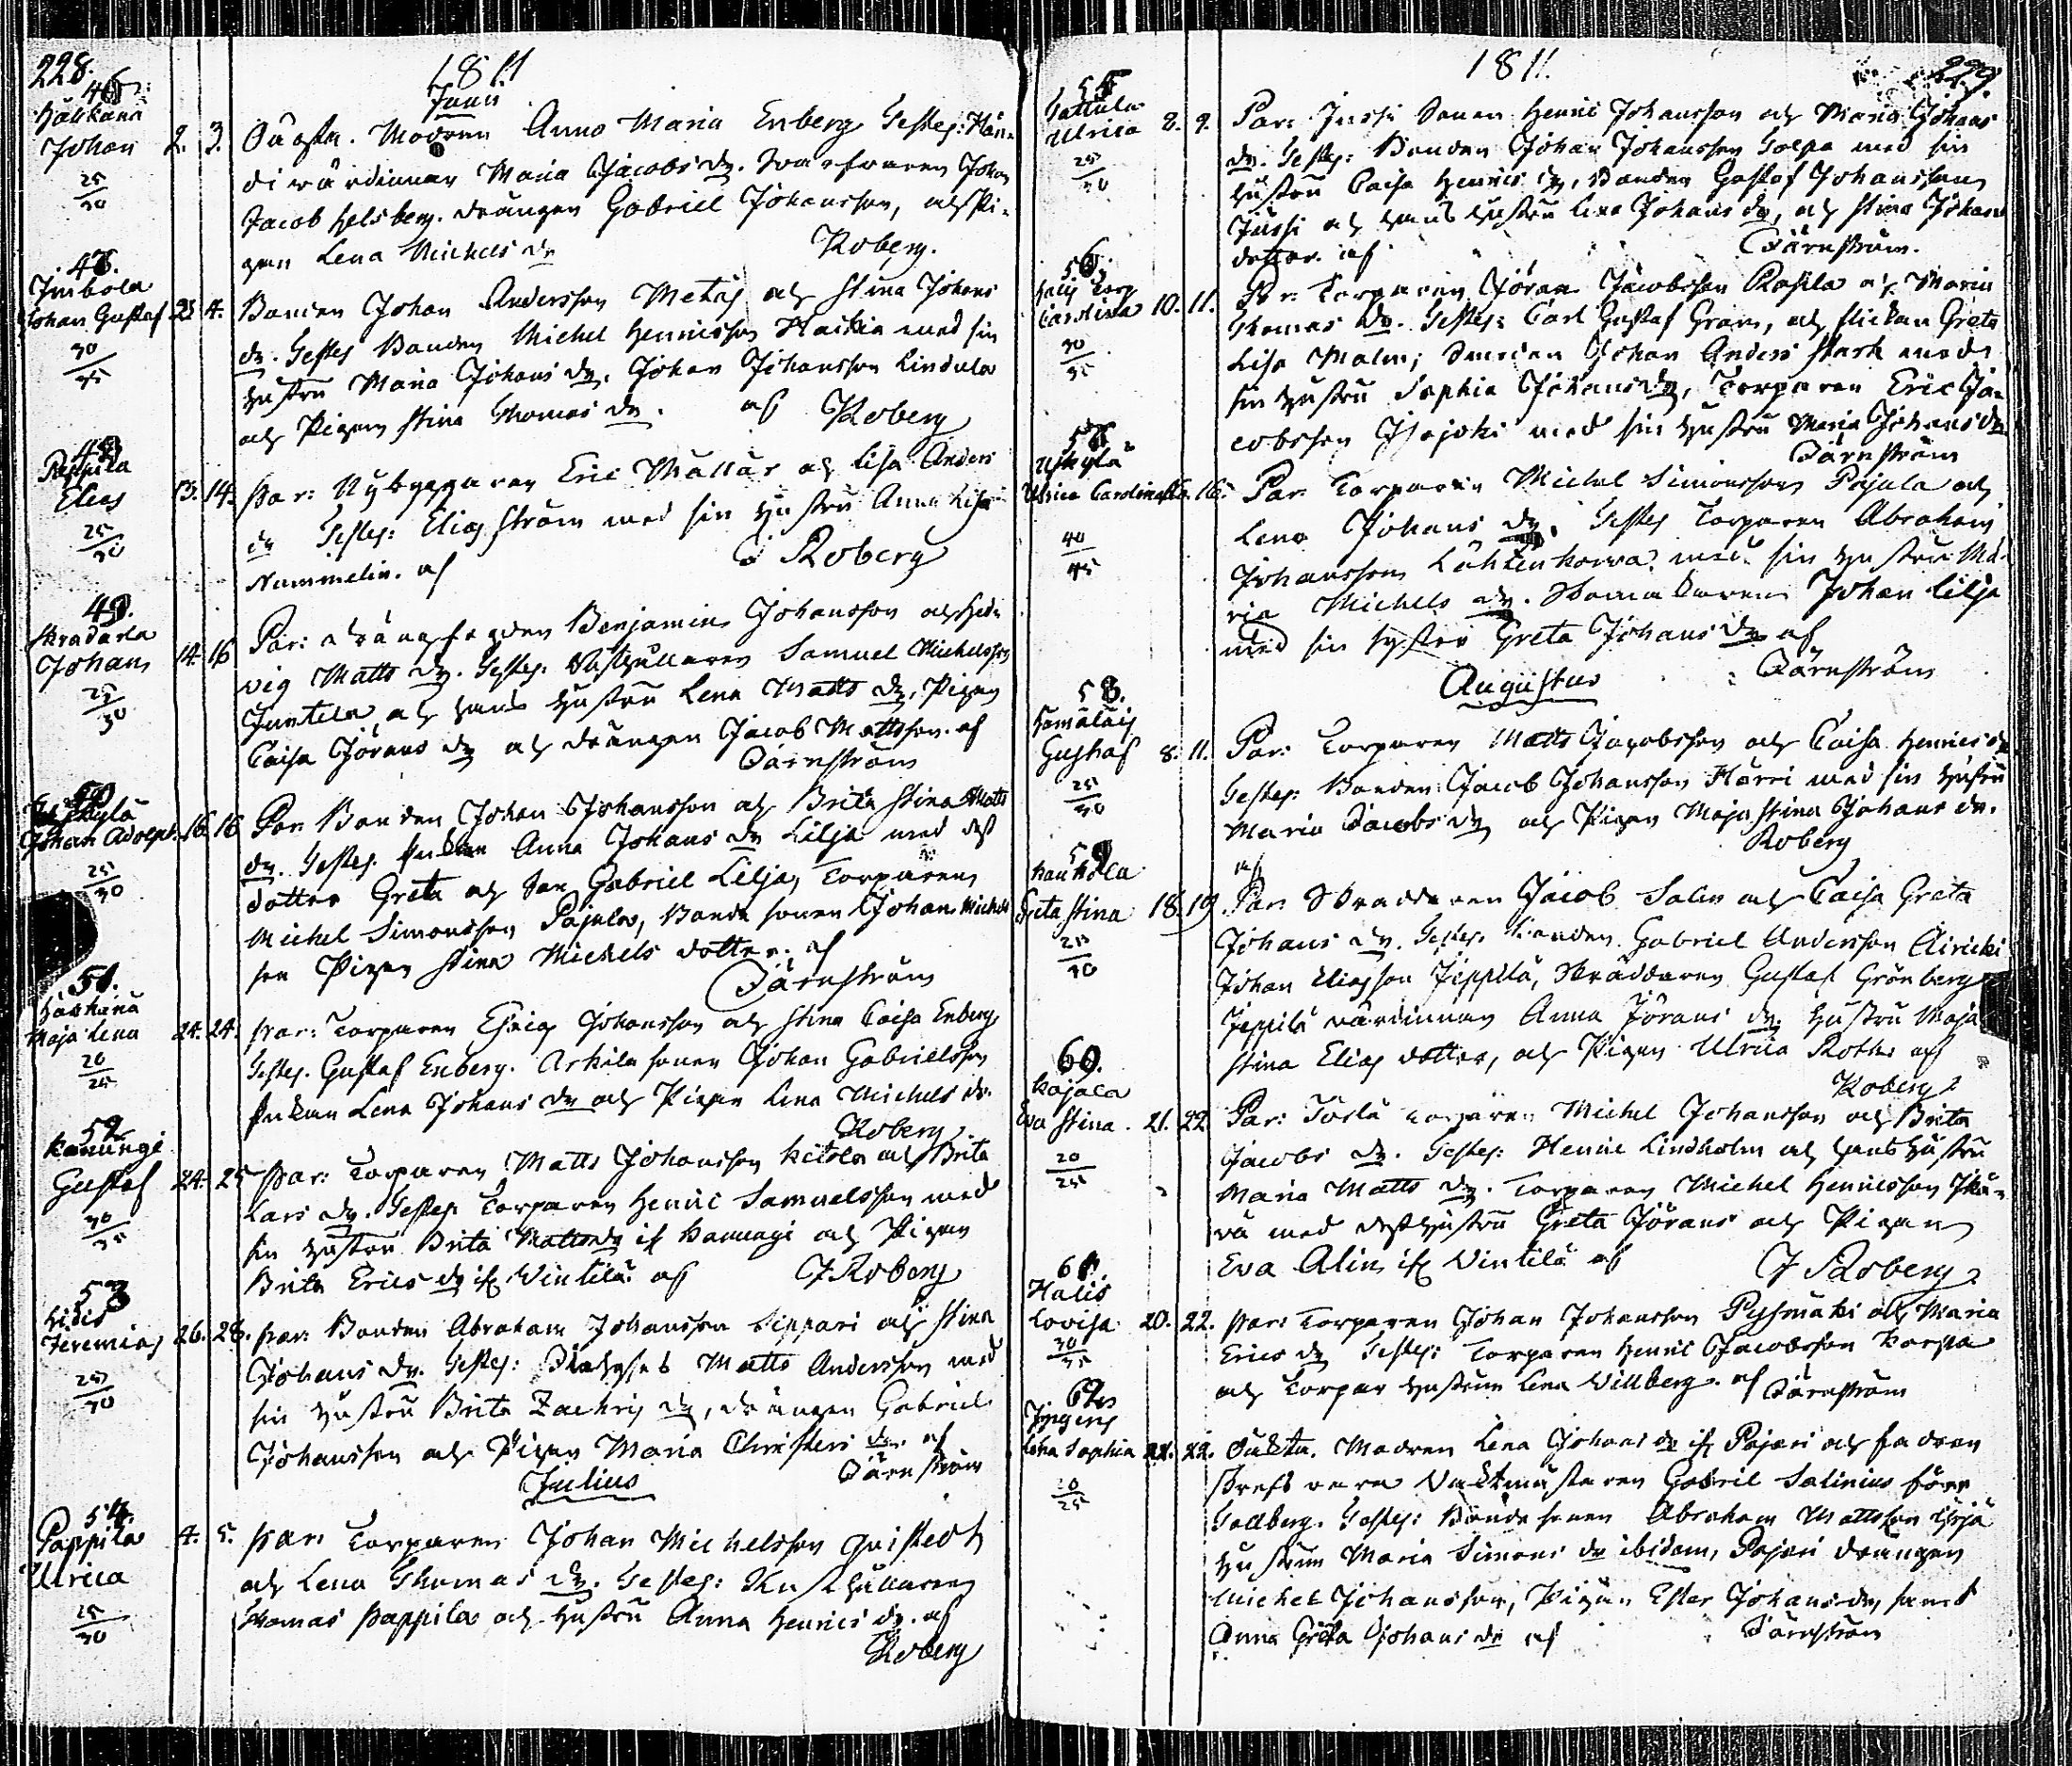 228.
1811
Junii
46
Häkkänä
Johan 2. 3. Oäkta. Modren Anna Maria Enberg Testes: Kän-
25/30
di wärdinnan Maria Jacobs dr. Swarfwaren Johan
Jacob Helsberg. drängen Gabriel Johansson, och Pi-
gan Lena Michels dr Roberg.
47.
Junkola
Johan Gustaf 23 4. Bonden Johan Andersson Metäs och Stina Johans
30/35
dr. Testes Bonden Michel Henricsson Haikia med sin
Hustru Maria Johans dr. Johan Johansson Lindula
och Pigan Stina Thomas dr. af Roberg
48
Pappila
Elias 13. 14. Par: Nybyggaren Eric Mattas och Lisa Anders
25/30
dr Testes: Elias Ström med sin Hustru Anna Lisa
Nummelin. af Roberg
49.
Skradarla
Johan 14. 16 Par: drängfogden Benjamin Johansson och Hed-
25/30
vig Matts dr. Testes. Rusthållaren Samuel Michelsson
Juntila, och hans Hustru Lena Matts dr, Pigan
Caisa Jörans dr och drängen Jacob Mattsson. af
Därnström
50
kylä
Johan Adolph. 16 16 Par. Bonden Johan Johansson och Brita Stina Matts
25/30
dr. Testes. Enkan Anna Johans dr Lilja med dess
dotter Greta och Son Gabriel Lilja, Torparen
Michel Simonsson Pajula, Bonde sonen Johan Michels
son Pigan Stina Michels dotter. af
Därnström
51.
Häkkänä
Maja Lena 24. 24. Par: Torparen Esaias Johansson och Stina Caisa Enberg
20/25
Testes. Gustaf Enberg. Arkila sonen Johan Gabrielsson
Enkan Lena Johans dr och Pigan Lena Michels dr.
Roberg
52
Kanungi
Gustaf 24. 25 Par: Torparen Matts Johansson Kitola och Brita
30/35
Lars dr. Testes Torparen Henric Samuelsson med
sin Hustru Brita Matts dr if Kanungi och Pigan
Brita Erics dr if Wintilä af J Roberg
53
Hidis
Jeremias 26. 28. Par: Bonden Abraham Johansson Sippari och Stina
25/30
Johans dr. Testes: Matts Andersson med
sin Hustru Brita Zachris dr, drängen Gabriel
Johansson och Pigan Maria Christers dr. af
Julius Därnström
54.
Pappila
Ulrica 4. 5. Par: Torparen Johan Michelsson Quistedt
25/30
och Lena Thomas dr. Testes: Rusthållaren
Thomas Pappila och Hustru Anna Henrics dr. af
Roberg
1811.
229.
55
Tattula
Ulrica 8. 9. Par: Jussi Sonen Henric Johansson och Maria Johans
25/30
dr. Testes: Bonden Johan Johansson Torpa med sin
Hustru Caisa Henrics dr, Bonden Gustaf Johansson
Jussi och hans Hustru Lena Johans dr, och Stina Johans
dotter. af Därnström.
56.
Halis Torp
Carolina 10. 11. Par. Torparen Jöran Jacobsson Rossla och Maria
30/35
Thomas dr. Testes: Carl Gustaf Gran, och flickan Greta
Lisa Malm; Smeden Johan Anders Stark med
sin Hustru Sophia Johans dr, Torparen Eric Ja-
cobsson Isojoki med sin Hustru Maria Johans dr.
Därnström
57.
Uskylä
Ulrica Carolina 15. 16. Par. Torparen Michel Simonsson Pajula och
40/45
Lena Johans dr. Testes Torparen Abraham
Johansson Lähtenkorva med sin Hustru Ma-
ria Michels dr. Skomakaren Johan Lilja
med sin syster Greta Johans dr af
Augustus Därnström
58.
Hämäläis
Gustaf 8. 11. Par: Torparen Matts Jacobsson och Caisa Henrics dr
25/30
Testes: Bonden Jacob Johansson Härri med sin Hustru
Maria Jacobs dr och Pigan Maja Stina Johans dr.
af Roberg
59
Kaukola
Greta Stina 18. 19 Par: Skraddaren Jacob Salin och Caisa Greta
25/30
Johans dr. Testes. Bonden Gabriel Andersson Äiricki
Johan Eliasson Jeppilä, Skräddaren Gustaf Grönberg
Jeppilä wärdinnan Anna Jörans dr. Hustru Maja
Stina Elias dotter, och Pigan Ulrica Roths af
Roberg
60.
Kajala
Eva Stina. 21. 22. Par: Torparen Michel Johansson och Brita
20/25
Jacobs dr. Testes: Henric Lindholm och hans Hustru
Maria Matts dr. Torparen Michel Henricsson Ikä-
vä med dess Hustru Greta Jörans och Pigan
Eva Alin if Wintilä af J Roberg
61.
Halis
Lovisa 20. 22. Par: Torparen Johan Johansson Pyssmäki och Maria
30/35
Erics dr Testes: Torparen Henric Jacobsson Torpa
och Torpar Hustrun Lena Willberg. af Därnström
62
Jyngens
Lena Sophia 22. 22. Oäkta. Modren Lena Johans dr if Pajari och fadren
20/25
skrefs vara Vaktmästaren Gabriel Salinius förr
Tallberg. Testes: Bonde sonen Abraham Mattsson Ylijä
Hustrun Maria Simons dr ibidem, Pajari drängen
Michel Johansson, Pigan Ester Johans dr, samt
Anna Greta Johans dr af Därnström